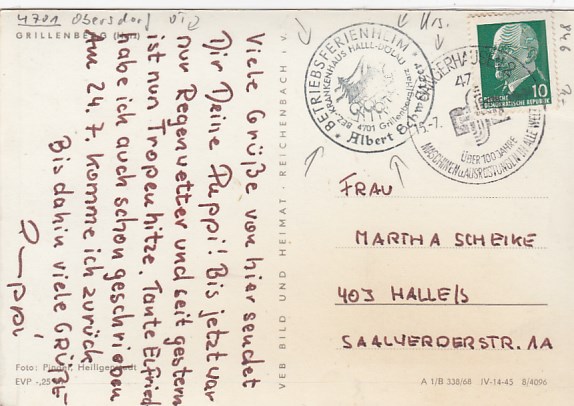 4701 Obersdorf
GRILLENBERG
Viele Grüße von hier sendet
Dir Deine Puppi! Bis jetzt war
nur Regenwetter und seit gestern
ist nun Tropenhitze. Tante Elfriede
habe ich auch schon geschrieben
Am 24.7. komme ich zurück.
Bis dahin viele GRÜßE
Puppi
Foto: Pinder, Heiligenstadt
EVP -,25
VEB BILD UND HEIMAT · REICHENBACH i. V.
Hrs.
BETRIEBSFERIENHEIM
BEZ.-KRANKENHAUS HALLE-DÖLAU
4701 Grillenberg
Albert Schweitzer
SANGERHAUSEN
47
15.-7.
ÜBER 100 JAHRE
MASCHINEN u. AUSRÜSTUNGEN IN ALLE WELT
10
DEUTSCHE DEMOKRATISCHE REPUBLIK
FRAU
MARTHA SCHEIKE
403 HALLE/S
SAALWERDERSTR. 1A
A 1/B 338/68 IV-14-45 8/4096